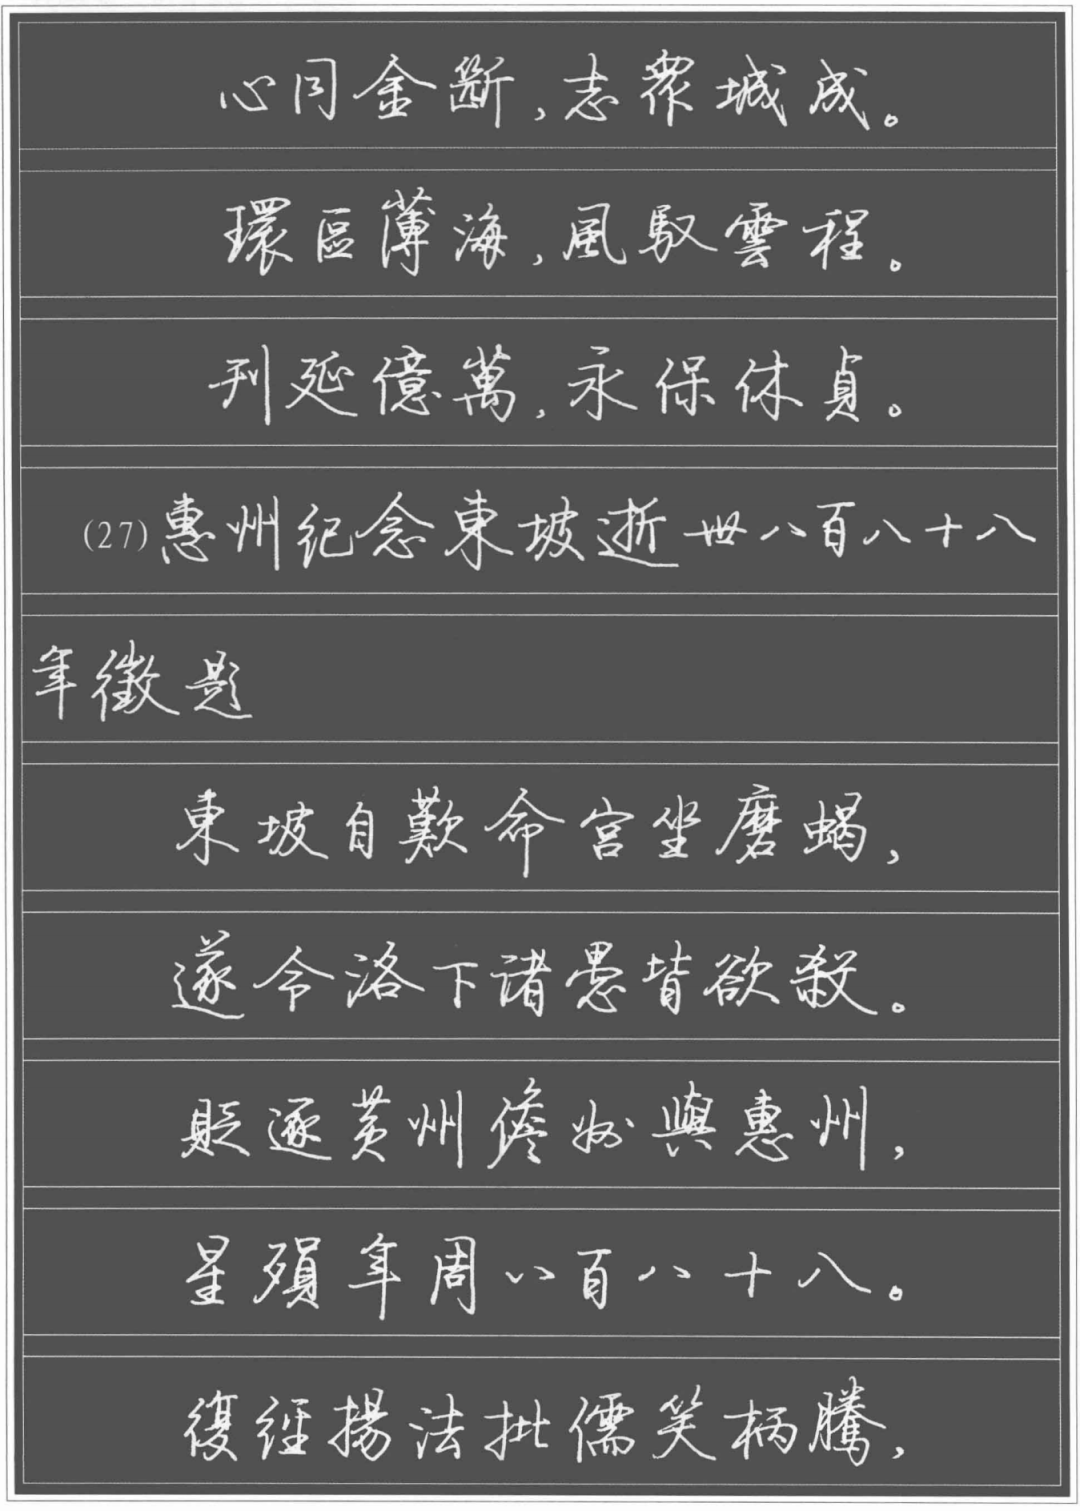 心同金斷，志衆城成。
環區薄海，風馭雲程。
刊延億萬，永保休貞。
(27)惠州纪念東坡逝世八百八十八
年徵题
東坡自歎命宫坐磨蝎，
遂令洛下諸愚皆欲殺。
貶逐黄州儋州與惠州，
星殞年周八百八十八。
復經揚法批儒笑柄騰，